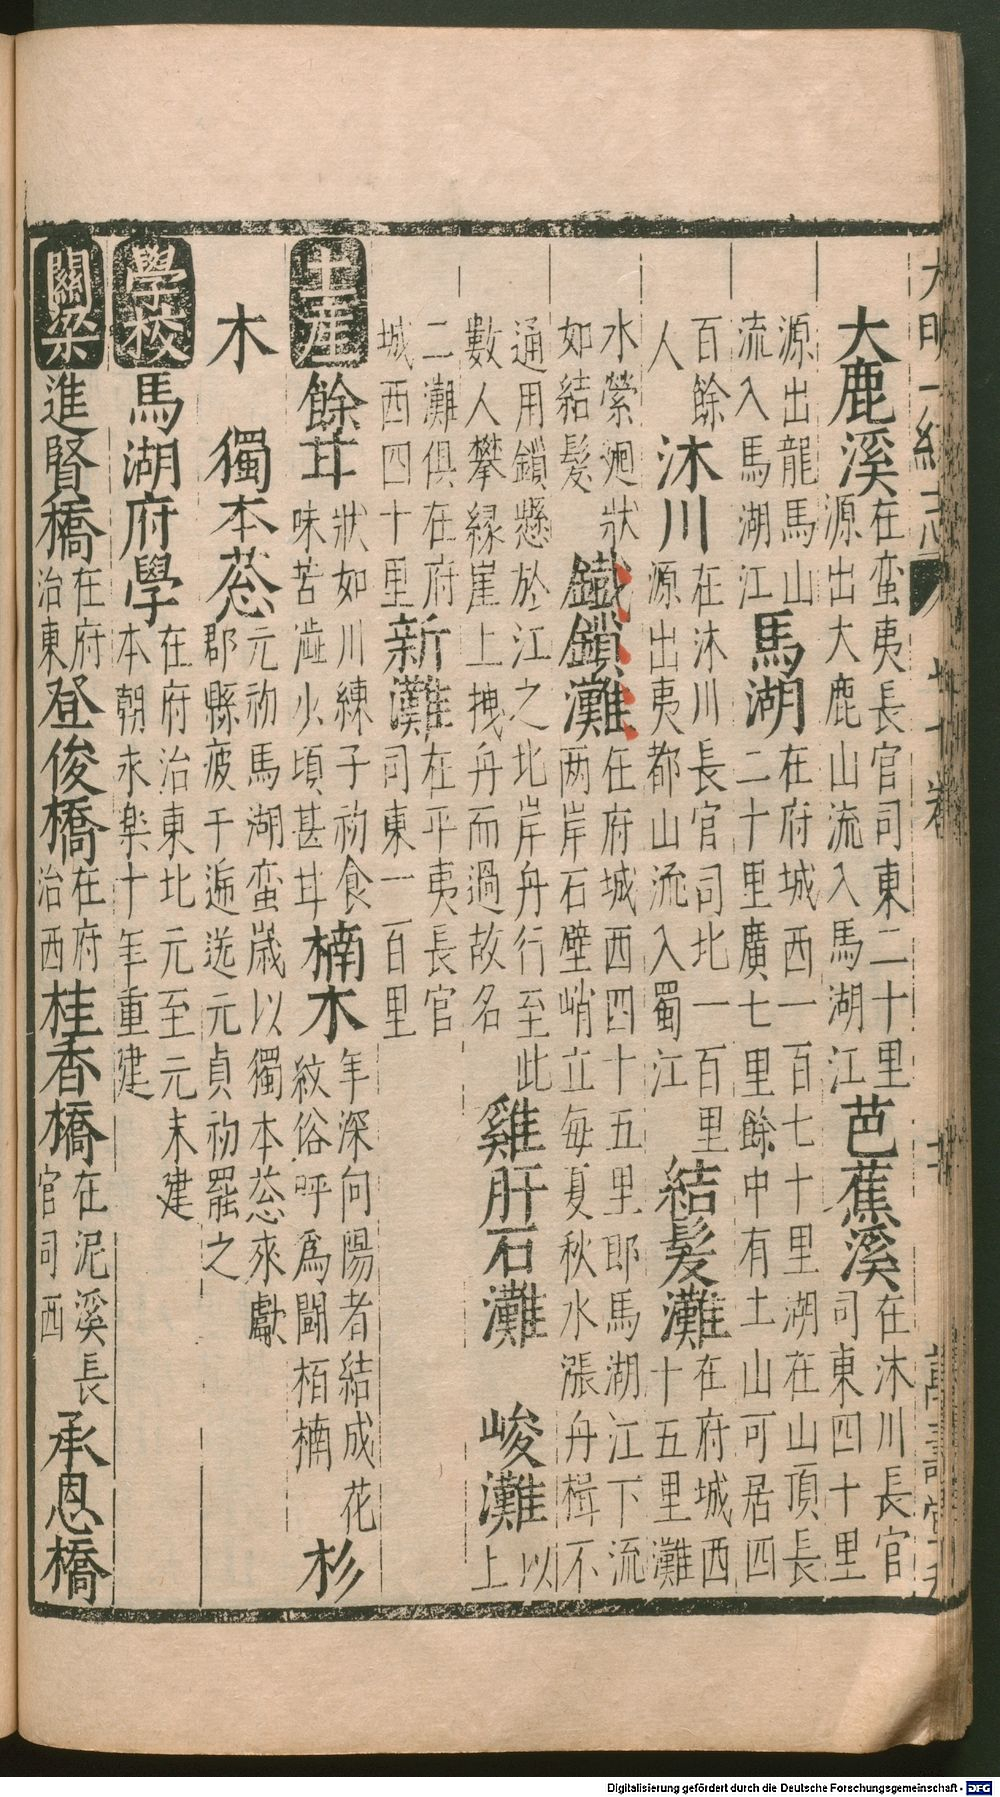 大明一統志 七十卷 十 萬壽堂刊
大鹿溪在蛮夷長官司東二十里源出大鹿山流入馬湖江芭蕉溪在沐川長官司東四十里
源出龍馬山流入馬湖江馬湖在府城西一百七十里湖在山頂長二十里廣七里餘中有土山可居四
百餘人沐川在沐川長官司北一百里源出夷都山流入蜀江結髮灘在府城西十五里灘
水縈廻狀如結髮鐵鎖灘在府城西四十五里郎馬湖江下流两岸石壁峭立每夏秋水漲舟楫不
通用鎖懸於江之北岸舟行至此數人攀緣崖上拽舟而過故名雞肝石灘 峻灘以上
二灘俱在府城西四十里新灘在平夷長官司東一百里
土産餘甘狀如川練子初食味苦澁少頃甚甘楠木年深向陽者結成花紋俗呼爲鬪栢楠杉
木 獨本葱元初馬湖蛮歳以獨本葱來獻郡縣疲于逓送元貞初罷之
學校馬湖府學在府治東北元至元末建本朝永樂十年重建
關梁進賢橋在府治東登俊橋在府治西桂香橋在泥溪長官司西承恩橋
Digitalisierung gefördert durch die Deutsche Forschungsgemeinschaft - DFG